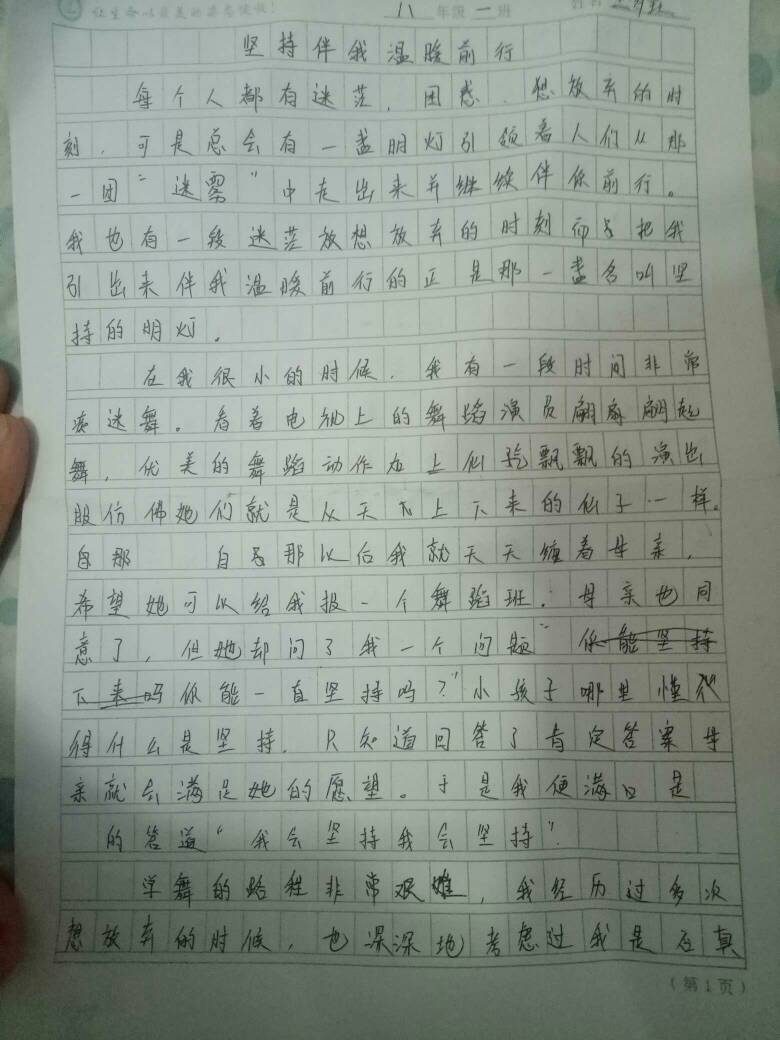 让生命以最美的姿态绽放！ 八年级一班 姓名
坚持伴我温暖前行
每个人都有迷茫、困惑、想放弃的时
刻，可是总会有一盏明灯引领着人们从那
一团“迷雾”中走出来并继续伴你前行。
我也有一段迷茫放想放弃的时刻而把我
引出来伴我温暖前行的正是那一盏名叫坚
持的明灯。
在我很小的时候，我有一段时间非常
痴迷舞。看着电视上的舞蹈演员翩扇翩起
舞，优美的舞蹈动作加上仙气飘飘的演出
服仿佛她们就是从天下上下来的仙子一样。
自那 自那以后我就天天缠着母亲，
希望她可以给我报一个舞蹈班，母亲也同
意了，但她却问了我一个问题“你能坚持
下来吗你能一直坚持吗？”小孩子哪里懂
得什么是坚持，只知道回答了肯定答案母
亲就会满足她的愿望。于是我便满口是
的答道“我会坚持我会坚持”
学舞的路程非常艰难，我经历过多次
想放弃的时候，也深深地考虑过我是否真
（第1页）